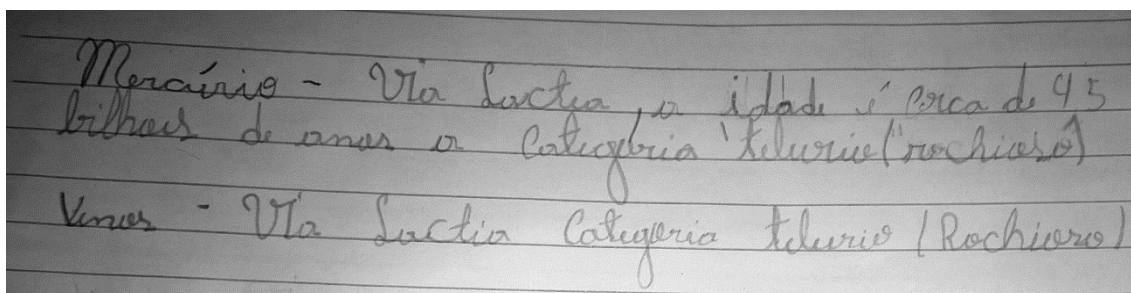 Mercúrio - Vía Lactea, a idade é cerca de 45
bilhões de anos a Categoria telurio ("rochioso")
Venus - Vía Lactia Categoria telurio (Rochioso)